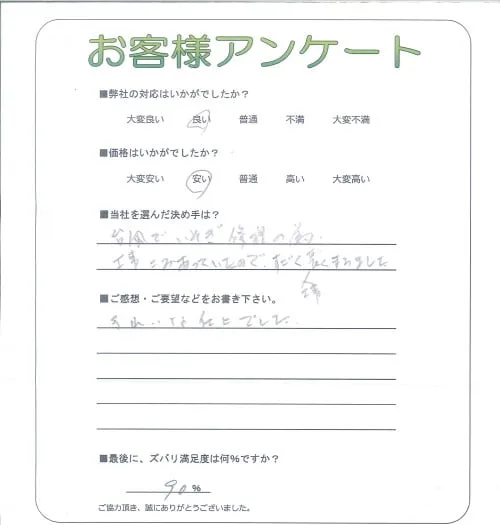 お客様アンケート
■弊社の対応はいかがでしたか？
大変良い 良い 普通 不満 大変不満
■価格はいかがでしたか？
大変安い 安い 普通 高い 大変高い
■当社を選んだ決め手は？
台風でいそぎ修理の為.
工事
■ご感想・ご要望などをお書き下さい。
きれいな仕上でした.
■最後に、ズバリ満足度は何％ですか？
90 %
ご協力頂き、誠にありがとうございました。